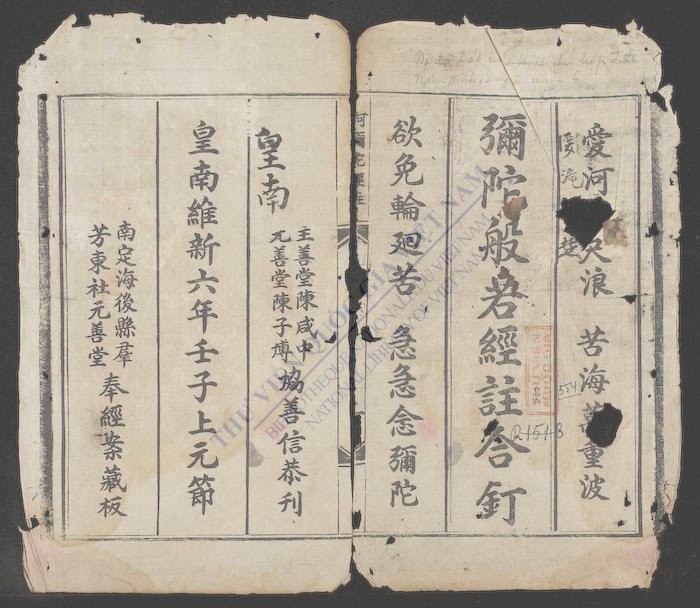 愛河 浪 苦海 重波
彌陀般若經註合訂
欲免輪廻苦 急急念彌陀
皇南
主善堂陳咸中
元善堂陳子慱
協善信恭刋
皇南維新六年壬子上元節
南定海後縣羣
芳東社元善堂
奉經案藏板
阿彌陀經註
THƯ VIỆN QUỐC GIA VIỆT NAM
BIBLIOTHEQUE NATIONALE DU VIETNAM
NATIONAL LIBRARY OF VIETNAM
554
R-1548